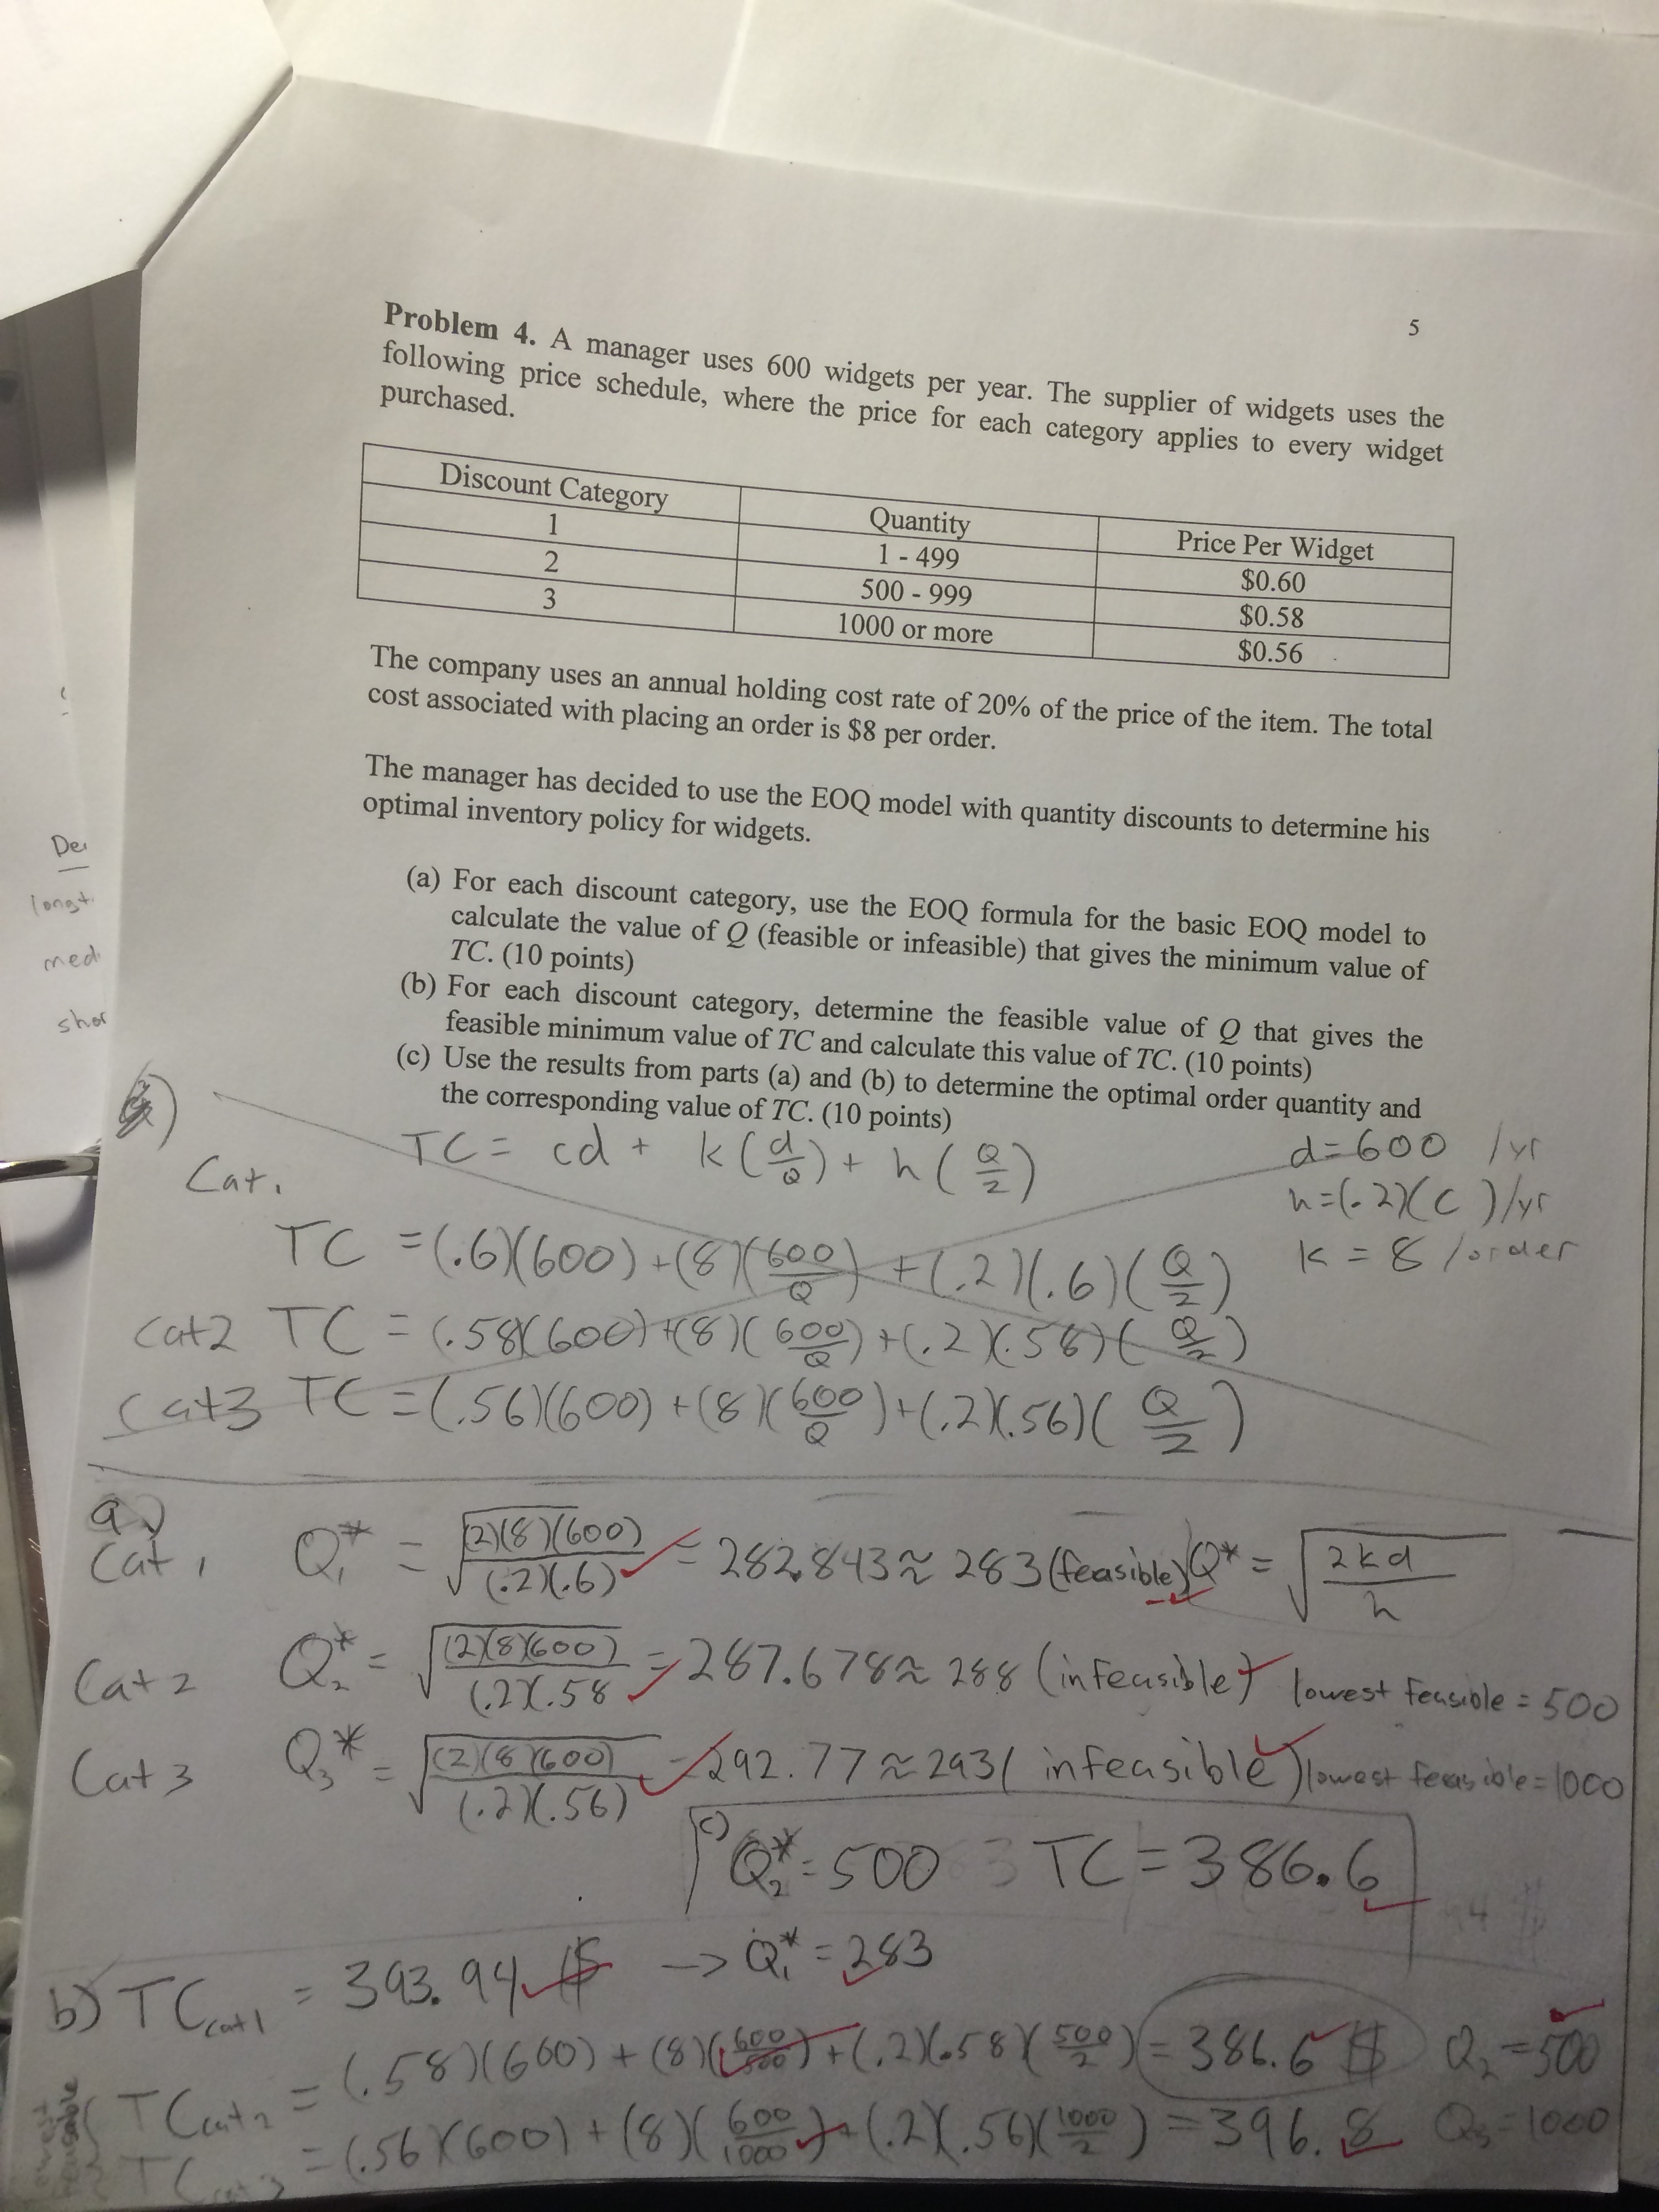 5
Problem 4. A manager uses 600 widgets per year. The supplier of widgets uses the
following price schedule, where the price for each category applies to every widget
purchased.
Discount Category Quantity Price Per Widget
1 1 - 499 $0.60
2 500 - 999 $0.58
3 1000 or more $0.56
The company uses an annual holding cost rate of 20% of the price of the item. The total
cost associated with placing an order is $8 per order.
The manager has decided to use the EOQ model with quantity discounts to determine his
optimal inventory policy for widgets.
(a) For each discount category, use the EOQ formula for the basic EOQ model to
calculate the value of Q (feasible or infeasible) that gives the minimum value of
TC. (10 points)
(b) For each discount category, determine the feasible value of Q that gives the
feasible minimum value of TC and calculate this value of TC. (10 points)
(c) Use the results from parts (a) and (b) to determine the optimal order quantity and
the corresponding value of TC. (10 points)
TC = cd + k(d/Q) + h(Q/2)
d=600 /yr
h=(.2)(c )/yr
k = 8 /order
Cat 1
TC =(.6)(600)+(8)(600/Q)+(.2)(.6)(Q/2)
Cat2 TC = (.58)(600)+(8)(600/Q)+(.2)(.58)(Q/2)
Cat3 TC =(.56)(600)+(8)(600/Q)+(.2)(.56)(Q/2)
a)
Cat 1 Q₁* = √((2)(8)(600)/(.2)(.6)) = 282.843≈ 283(feasible) Q* = √(2kd/h)
Cat 2 Q₂* = √((2)(8)(600)/(.2)(.58) = 287.678≈ 288 (infeasible) lowest feasible = 500
Cat 3 Q₃* = √((2)(8)(600)/(.2)(.56)) = 292.77≈293( infeasible) lowest feasible=1000
c) Q₂*= 500 TC = 386.6
b) TCcat1 = 393.94 $ -> Q₁* = 283
TCcat2 = (.58)(600) + (8)(600/500) + (.2)(.58)(500/2) = 386.6 $ Q₂ =500
TCcat3 = (.56)(600) + (8)(600/1000) + (.2)(.56)(1000/2) = 396.8 Q₃=1000
lowest
feasible
De
longt
med
shor